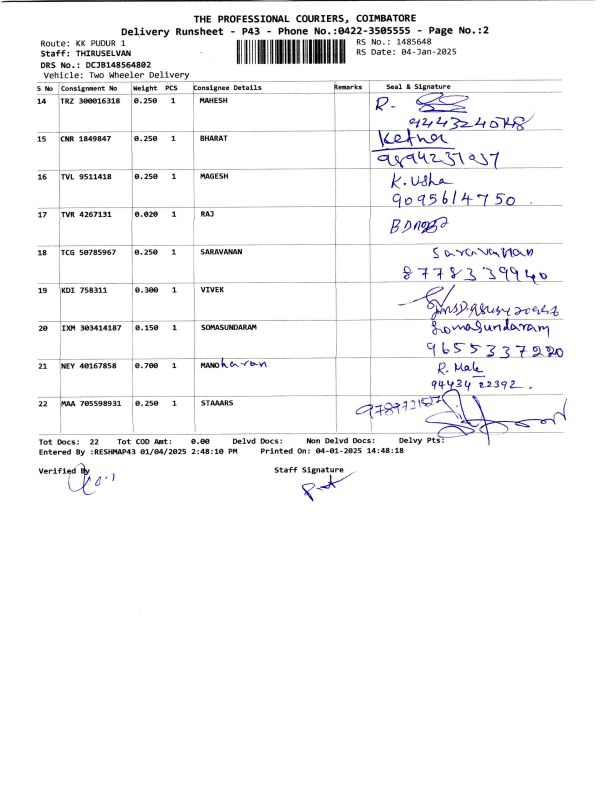 THE PROFESSIONAL COURIERS, COIMBATORE
Delivery Runsheet - P43 - Phone No.:0422-3505555 - Page No.:2
Route: KK PUDUR 1 RS No.: 1485648
Staff: THIRUSELVAN RS Date: 04-Jan-2025
DRS No.: DCJB148564802
Vehicle: Two Wheeler Delivery
S No Consignment No Weight PCS Consignee Details Remarks Seal & Signature
14 TRZ 300016318 0.250 1 MAHESH R.
15 CNR 1849847 0.250 1 BHARAT
9894237937
16 TVL 9511418 0.250 1 MAGESH K. Usha
9095614750
17 TVR 4267131 0.020 1 RAJ
18 TCG 50785967 0.250 1 SARAVANAN Saravanan
8778339940
19 KDI 758311 0.300 1 VIVEK
20 IXM 303414187 0.150 1 SOMASUNDARAM Somasundaram
9655337220
21 NEY 40167858 0.700 1 MANOharan R.
94434 22392.
22 MAA 705598931 0.250 1 STAAARS
Tot Docs: 22 Tot COD Amt: 0.00 Delvd Docs: Non Delvd Docs: Delvy Pts:
Entered By :RESHMAP43 01/04/2025 2:48:10 PM Printed On: 04-01-2025 14:48:18
Verified By Staff Signature